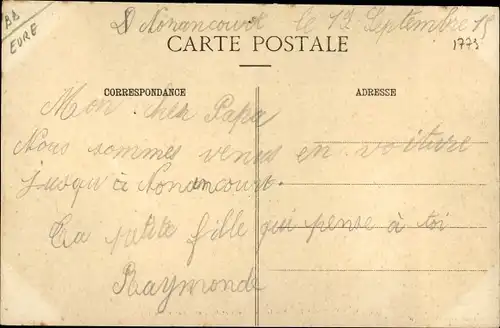 Nonancourt le 12 Septembre 15
BB
EURE
CARTE POSTALE
1773
CORRESPONDANCE
ADRESSE
Mon cher Papa
Nous sommes venus en voiture
jusqu'à Nonancourt.
Ta petite fille qui pense à toi
Raymonde